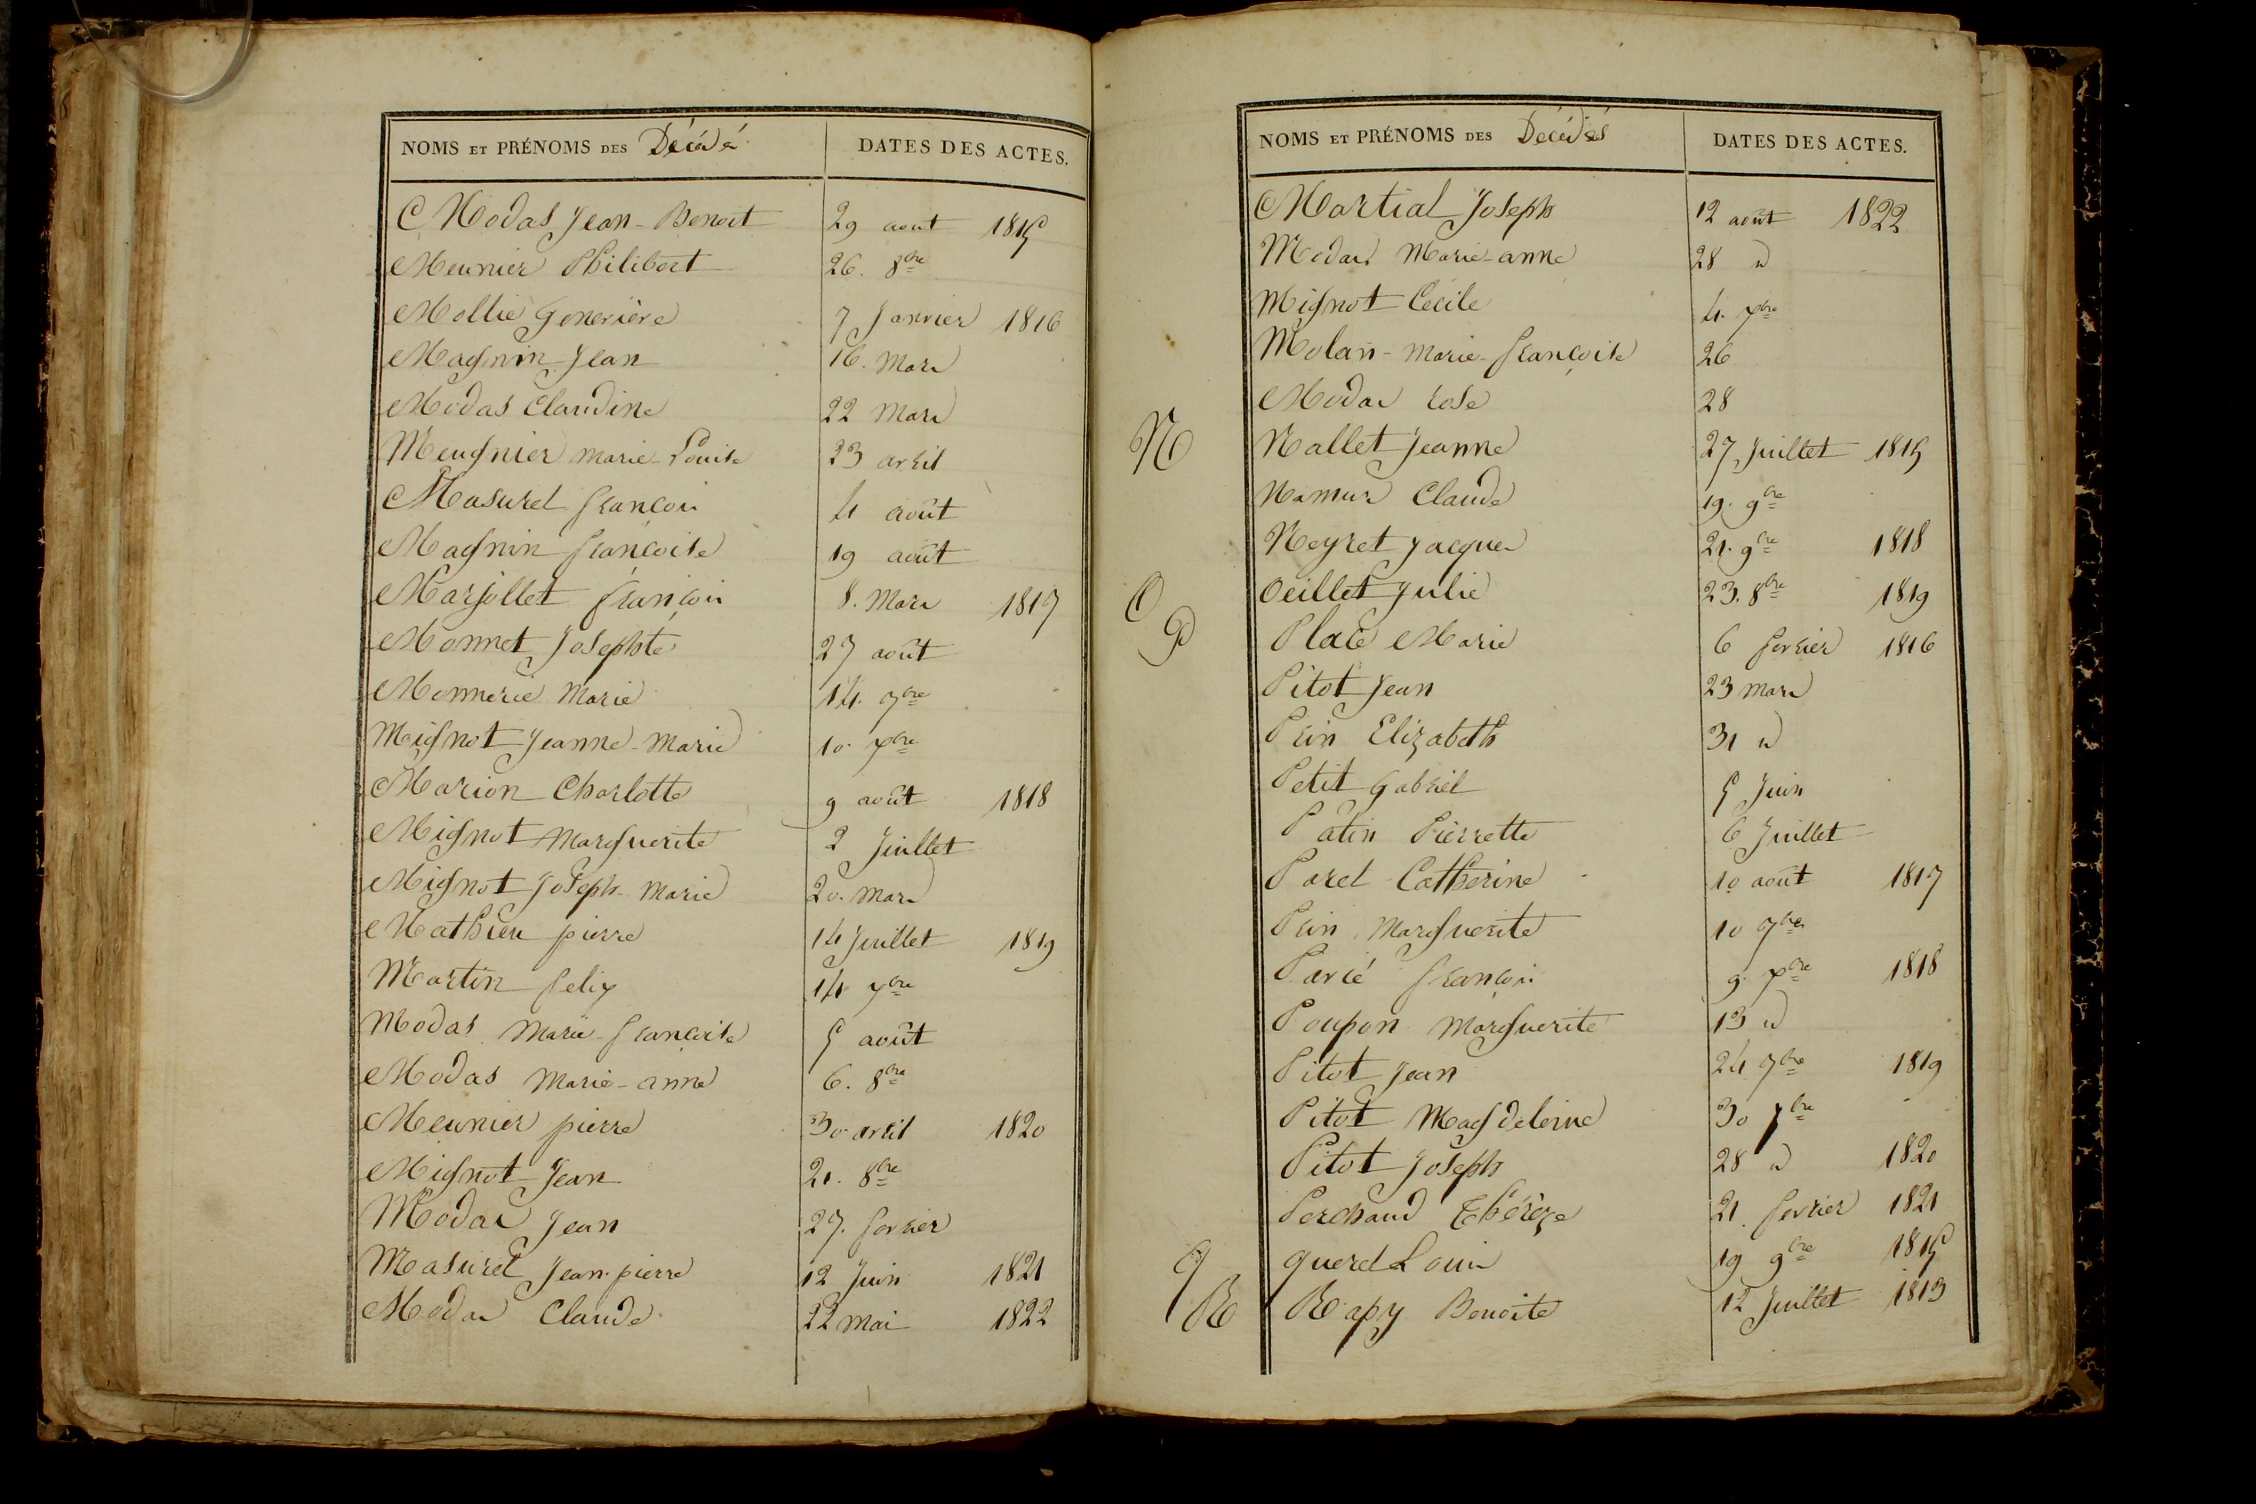 NOMS ET PRÉNOMS DES Décédés DATES DES ACTES.
Modas Jean-Benoit 29 aout 1815
Meunier Philibert 26. 8bre
Mollie Genevieve 7 Janvier 1816
Magnin Jean 16. Mars
Modas Claudine 22 Mars
Meugnier Marie-Louise 23 avril
Masuret françois 4 août
Magnin françoise 19 août
Marjollet françois 8. Mars 1817
Monnet Josephte 27 août
Monnerie Marie 14. 7bre
Mignot Jeanne-Marie 10. Xbre
Marion Charlotte 9 août 1818
Mignot Marguerite 2 Juillet
Mignot Joseph-Marie 20. Mars
Mathieu pierre 14 Juillet 1819
Martin felix 14 Xbre
Modas Marie-françoise 5 août
Modas Marie-anne 6. 8bre
Meunier pierre 30 avril 1820
Mignot Jean 21. 8bre
Modas Jean 27. fevrier
Masuret Jean-pierre 12 Juin 1821
Modas Claude 22 mai 1822
NOMS ET PRÉNOMS DES Décédés DATES DES ACTES.
Martial Joseph 12 août 1822
Modas Marie-anne 28 d
Mignot Cécile 4. Xbre
Molan-Marie-françoise 26
Modas rose 28
N Nallet Jeanne 27 Juillet 1815
Namur Claude 19. 9bre
Neyret Jacques 21. 9bre 1818
O Oeillet Julie 23. 8bre 1819
P Place Marie 6 fevrier 1816
Pitot Jean 23 mars
Prin Elizabeth 31 d
Petit Gabriel 5 Juin
Patin Pierrette 6 Juillet
Paret Catherine 10 août 1817
Prin Marguerite 10 7bre
Parié françois 9. Xbre 1818
Poupon Marguerite 13 d
Pitot Jean 24 7bre 1819
Pitot Magdeleine 30 Xbre
Pitot Joseph 28 d 1820
Perchaud Thérèze 21. fevrier 1821
q queret Louis 19 9bre 1815
R Rapy Benoite 12 Juillet 1813